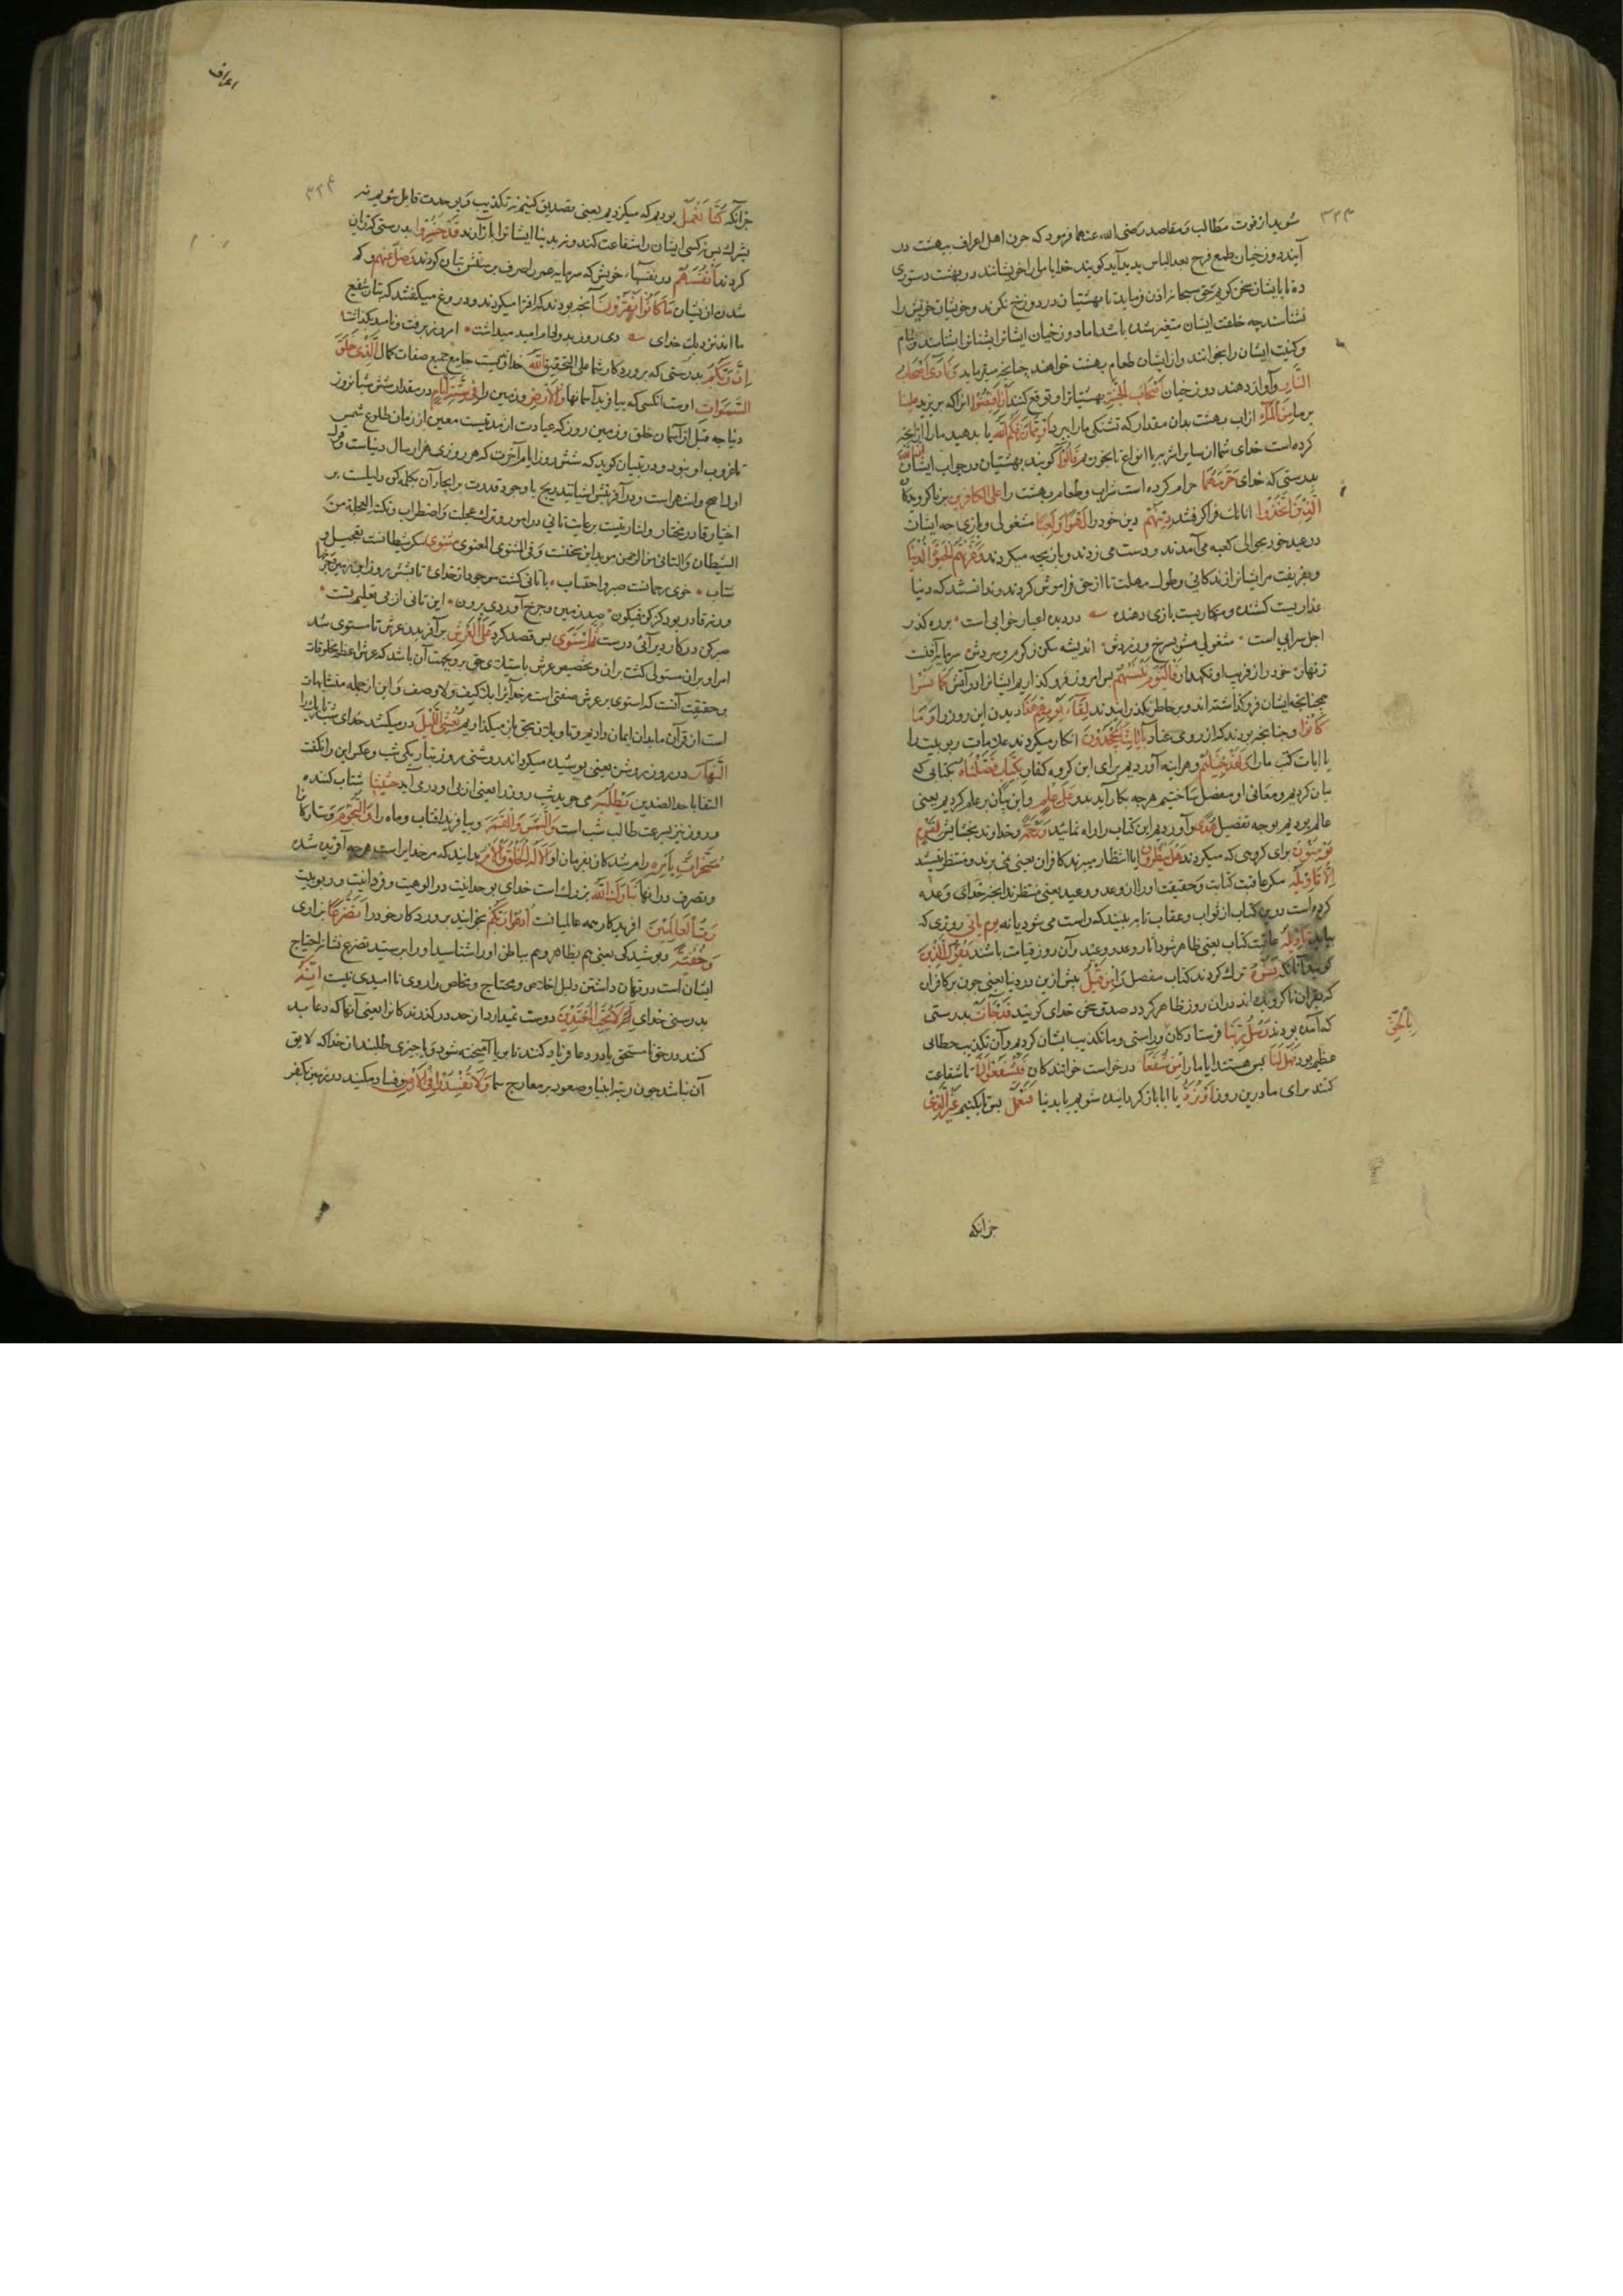 ۳۲۳
شوید از فوت مطالب و مقاصد رضی الله عنهما فرمود که چون اهل اعراف ببهشت در
آیند دوزخیان طمع فرح بعد الیاس پدید آید کویند خدایا ما را خویشانند در بهشت دستوری
ده تا با ایشان سخن کویم حق سبحانه اذن فرماید تا بهشتیان در دوزخ نکرند و خویشان خویش را
نشناسند چه خلقت ایشان متغیر شده باشد اما دوزخیان ایشانرا بشناسند و بنام
و کنیت ایشان را بخوانند و از ایشان طعام بهشت خواهند چنانچه میفرماید وَنَادَى أَصْحَابُ
النَّارِ و آواز دهند دوزخیان أَصْحَابَ الْجَنَّةِ بهشتیانرا و توقع کنند أَنْ أَفِيضُوا آنرا که بریزید عَلَيْنَا
بر ما مِنَ الْمَاءِ از آب بهشت بدان مقدار که تشنکی ما را ببرد أَوْ مِمَّا رَزَقَكُمُ اللَّهُ یا بدهید ما را از آنچه
کرده است خدای شما از سایر اشربه یا انواع تا بخوریم قَالُوا کویند بهشتیان در جواب ایشان إِنَّ اللَّهَ
بدرستی که خدای حَرَّمَهُمَا حرام کرده است شراب و طعام بهشت را عَلَى الْكَافِرِينَ بر ناکرویدکان
الَّذِينَ اتَّخَذُوا آنانکه فرا کرفتند دِينَهُمْ دین خود را لَهْوًا وَلَعِبًا مشغولی و بازی چه ایشان
در عید خود بحوالی کعبه می آمدند و دست می زدند و بازیچه میکردند وَغَرَّتْهُمُ الْحَيَوةُ الدُّنْيَا
و بفریفت مر ایشانرا زندکانی و طول مهلت تا از حق فراموش کردند و ندانستند که دنیا
غداریست کشنده و مکاریست بازی دهنده در دیده اعیار خوابی است بر ره کذر
اجل سرابی است مشغولی مشو بسرخ و زردش اندیشه مکن ز کرم و سردش سرمایه آفتست
زنهار خود را ز فریب او نکهدار فَالْيَوْمَ نَنْسَاهُمْ پس امروز فرو کذاریم ایشانرا در آتش كَمَا نَسُوا
همچنانچه ایشان فرو کذاشتند و بر خاطر نکذرانیدند لِقَاءَ يَوْمِهِمْ هَذَا دیدن این روز را وَمَا
كَانُوا و چنانچه بودند که از روی عناد بِآيَاتِنَا يَجْحَدُونَ انکار میکردند علامات ربوبیت را
یا آیات کتب ما را وَلَقَدْ جِئْنَاهُمْ و هر آینه آوردیم برای این کروه کفار بِكِتَابٍ فَصَّلْنَاهُ بکتابی که
بیان کردیم و معانی او مفصل ساختیم هر چه بکار آید بدو عَلَى عِلْمٍ و این بیان بر علم کردیم یعنی
عالم بودیم بوجه تفصیل هُدًى و آوردیم این کتاب را راه نماینده وَرَحْمَةً و خداوند بخشایش لِقَوْمٍ
يُؤْمِنُونَ برای کروهی که میکروند هَلْ يَنْظُرُونَ آیا انتظار میبرند کافران یعنی نمی برند و منتظر نیستند
إِلَّا تَأْوِيلَهُ مکر عاقبت کتاب و حقیقت او را از وعد و وعید یعنی منتظرند آنچه خدای وعده
کرده است درین کتاب از ثواب و عقاب تا ببینند که راست می شود یا نه یوم یأتی روزی که
بیاید تَأْوِيلُهُ عاقبت کتاب یعنی ظاهر شود آثار وعد و وعید و آن روز قیامت باشد يَقُولُ الَّذِينَ
کویند آنانکه نَسُوهُ ترک کردند کتاب مفصل را مِنْ قَبْلُ پیش ازین در دنیا یعنی چون بر کافران
که بقرآن ناکرویده اند در آن روز ظاهر کردد صدق سخن خدای کویند قَدْ جَاءَتْ بدرستی
که آمده بودند رُسُلُ رَبِّنَا فرستادکان براستی و ما تکذیب ایشان کردیم و آن تکذیب خطائی
بِالْحَقِّ
عظیم بود فَهَلْ لَنَا پس هستند آیا ما را مِنْ شُفَعَاءَ درخواست خوانندکان فَيَشْفَعُوا لَنَا تا شفاعت
کنند برای ما درین روز أَوْ نُرَدُّ یا آیا باز کردانیده شویم یا بدنیا فَنَعْمَلَ پس تا بکنیم غَيْرَ الَّذِي
جز آنکه
اعراف
۳۲۴
جز آنکه كُنَّا نَعْمَلُ بودیم که میکردیم یعنی تصدیق کنیم نه تکذیب و بوحدت قایل شویم نه
بشرک پس نه کسی ایشان را شفاعت کند و نه بدنیا ایشانرا باز آرند قَدْ خَسِرُوا بدرستی که زیان
کردند أَنْفُسَهُمْ در نفسهاء خویش که سرمایه عمر را صرف پرستش بتان کردند وَضَلَّ عَنْهُمْ و کم
شدند از ایشان مَا كَانُوا يَفْتَرُونَ آنچه بودند که افترا میکردند و دروغ میکفتند که بتان شفیع
ما اند نزدیک خدای دی روز بدو لجام امید میداشت امروز برفت و نامید بکذاشت
إِنَّ رَبَّكُمُ بدرستی که پروردکار شما علی التحقیق اللَّهُ خداوکست جامع جمیع صفات کمال الَّذِي خَلَقَ
السَّمَوَاتِ اوست آنکسی که بیافرید آسمانها وَالْأَرْضَ و زمین را فِي سِتَّةِ أَيَّامٍ در مقدار شش شبانروز
دنیا چه قبل از آسمان خلق و زمین روز که عبادت از مدتیست معین از زمان طلوع شمس
تا غروب او نبود و در تبیان کوید که شش روز ایام آخرت که هر روزی هزار سال دنیاست و قول
اول اصح و اشهر است و در آفرینش اشیا بتدریج با وجود قدرت بر ایجاد آن بکلمه کن دلیلست بر
اختیار قادر مختار و اشارتیست برعایت تانی در امور و ترک عجلت و اضطراب و نکته العجلة من
الشیطان و التانی من الرحمن موید این سخنست و فی المثنوی المعنوی مثنوی مکر شیطانست تعجیل و
شتاب خوی رحمانست صبر و احتساب با تانی کشت موجود از خدای تا بشش روز این زمین و چرخها
ور نه قادر بود کز کن فیکون صد زمین و چرخ آوردی برون این تانی از پی تعلیم تست
صبر کن در کار دیر آئی درست ثُمَّ اسْتَوَى پس قصد کرد عَلَى الْعَرْشِ بر آفریدن عرش تا مستوی شد
امر او بر آن مستولی کشت بر آن و تخصیص عرش باستیلای حق بر وی جهت آن باشد که عرش اعظم مخلوقات
و حقیقت آنست که استوی بر عرش صفتی است مر خدایرا بلا کیف و لا وصف و این از جمله متشابهات
است از قرآن ما بدان ایمان داریم و تاویل آن بحق باز میکذاریم يُغْشِي اللَّيْلَ در میکشد خدای شب تاریک را
النَّهَارَ در روز روشن یعنی پوشیده میکرداند روشنی روز بتاریکی شب و عکس این را نکفت
اکتفا باحد الضدین يَطْلُبُهُ می جوید شب روز را یعنی از پی او در می آید حَثِيثًا شتاب کننده
و روز نیز بسرعت طالب شب است وَالشَّمْسَ وَالْقَمَرَ و بیافرید افتاب و ماه را وَالنُّجُومَ و ستارکانرا
مُسَخَّرَاتٍ بِأَمْرِهِ رام شدکان بفرمان او أَلَا لَهُ الْخَلْقُ وَالْأَمْرُ بدانید که مر خدایراست هر چه آفریده شده
و تصرف در آنها تَبَارَكَ اللَّهُ بزرک است خدای بوحدانیت در الوهیت و فردانیت در ربوبیت
رَبُّ الْعَالَمِينَ افریدکار همه عالمیانست ادْعُوا رَبَّكُمْ بخوانید پروردکار خود را تَضَرُّعًا بزاری
وَخُفْيَةً و پوشیدکی یعنی هم بظاهر و هم بباطن او را شناسید و او را پرستید تضرع نشان احتیاج
ایشان است و پنهان داشتن دلیل اخلاص و محتاج و مخلص را روی ناامیدی نیست إِنَّهُ
بدرستی خدای لَا يُحِبُّ الْمُعْتَدِينَ دوست نمیدارد از حد در کذرندکانرا یعنی آنها که دعا بد
کنند در حق نا مستحق یا در دعا فریاد کنند تا بریا آمیخته شود و یا چیزی طلبند از خدا که لایق
آن نباشد چون رتبه انبیا و صعود بر معارج سما وَلَا تُفْسِدُوا فِي الْأَرْضِ و فساد مکنید در زمین بکفر